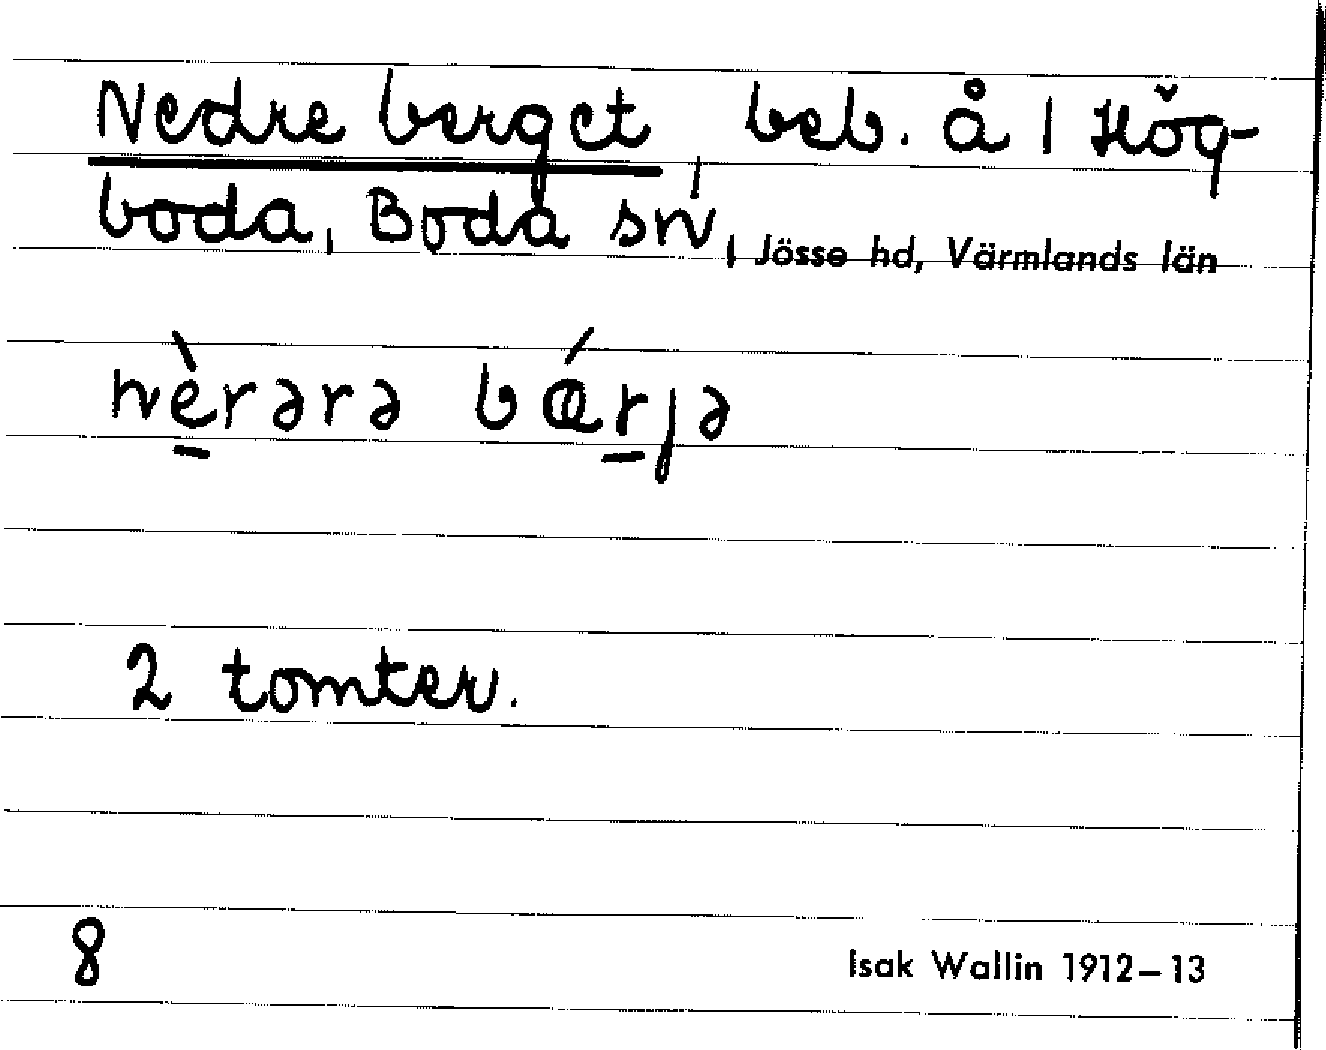 Nedre berget, beb. å 1 Hög-
boda, Boda sn, Jösse hd, Värmlands län
nèrərə bǽrjə
2 tomter.
8
Isak Wallin 1912–13